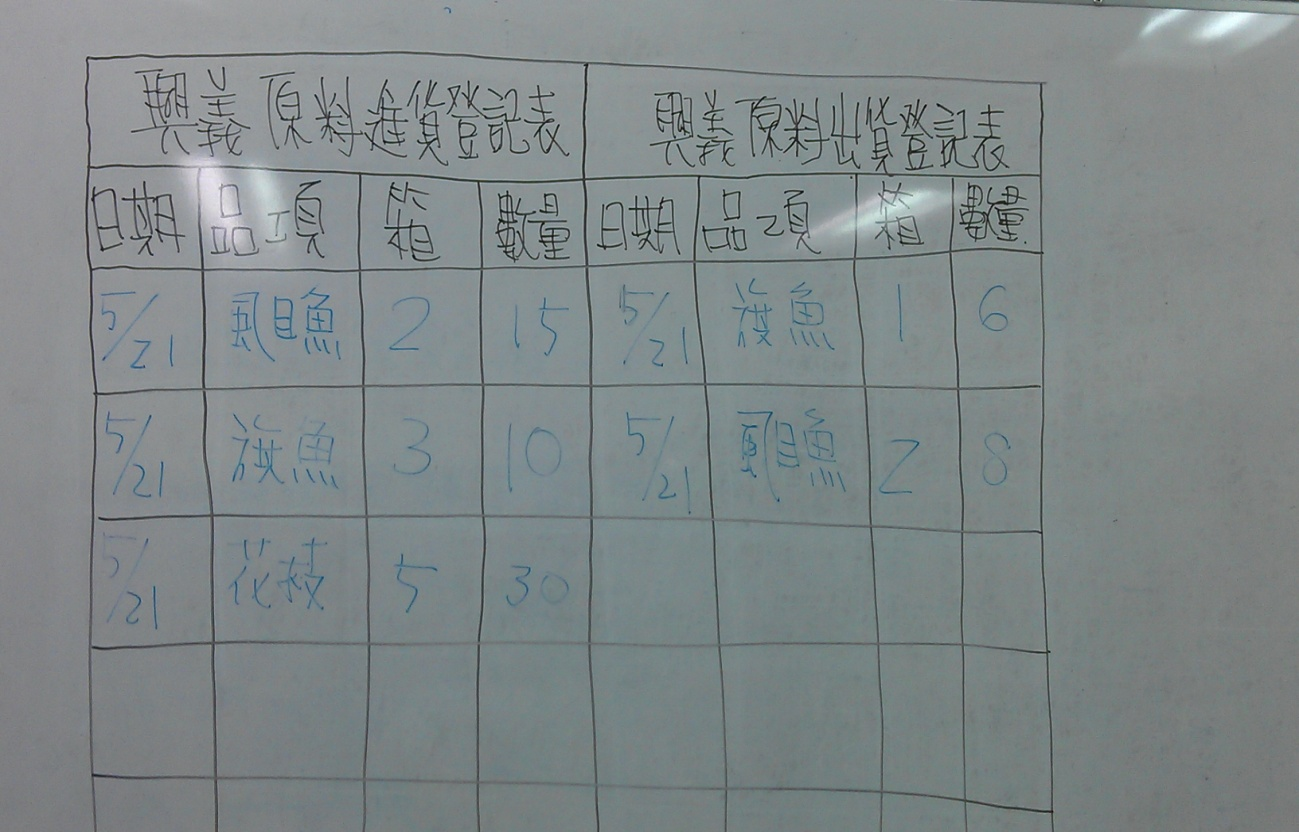 興義原料進貨登記表 興義原料出貨登記表
日期 品項 箱 數量 日期 品項 箱 數量
5/21 虱目魚 2 15 5/21 旗魚 1 6
5/21 旗魚 3 10 5/21 虱目魚 2 8
5/21 花枝 5 30